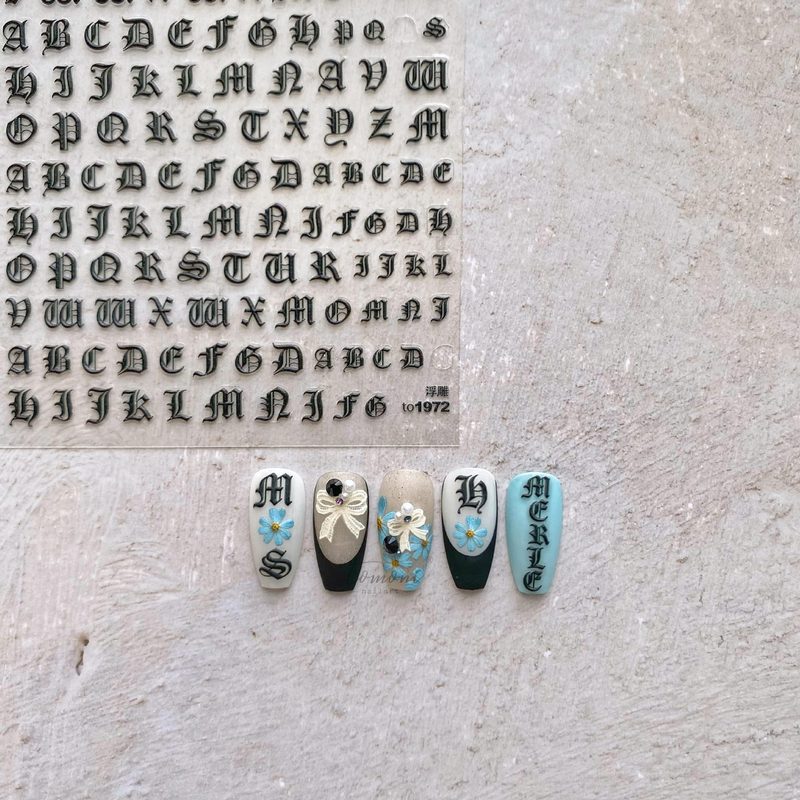 A B C D E F G H P Q S
H I J K L M N A V W
O P Q R S T X Y Z M
A B C D E F G D A B C D E
H I J K L M N I F G D H
O P Q R S T U R I J K L
V W W X W X M O M N I
A B C D E F G D A B C D
浮雕
H I J K L M N I F G
to1972
M
S
H
MERLE
nailart